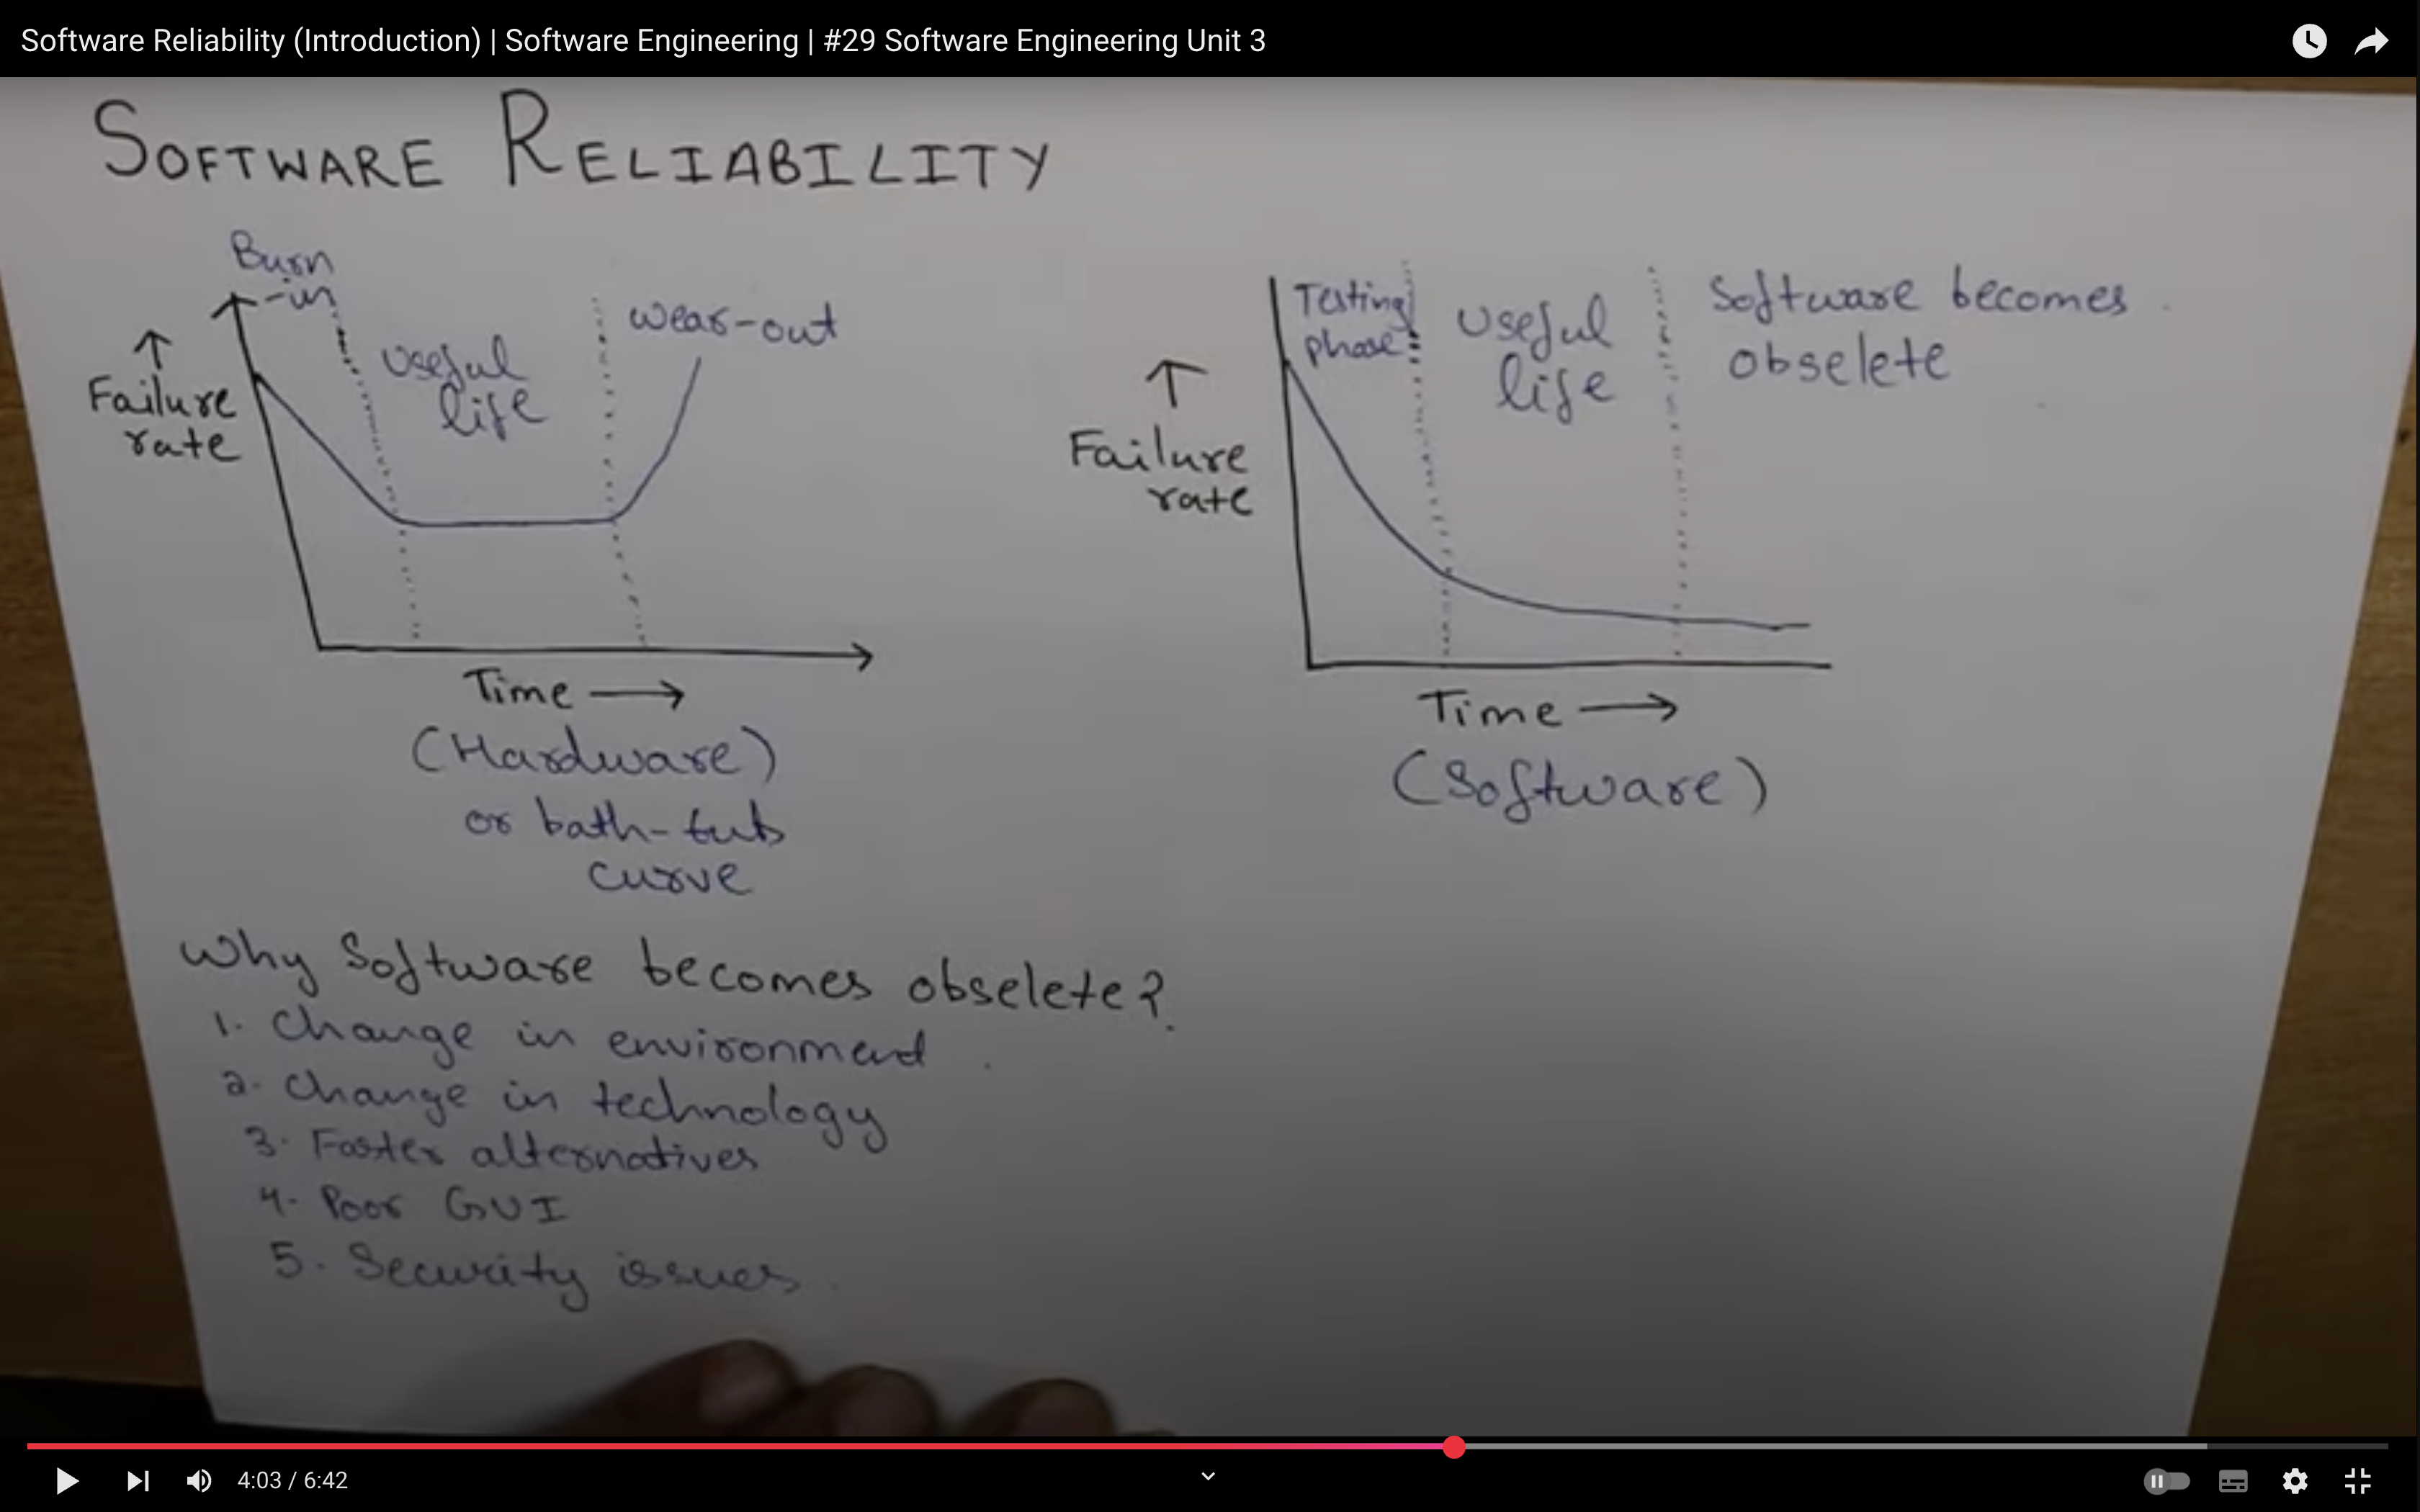 Software Reliability (Introduction) | Software Engineering | #29 Software Engineering Unit 3
SOFTWARE RELIABILITY
Burn
-in
useful
life
wear-out
↑
Failure
rate
Time →
(Hardware)
or bath-tub
curve
Testing
phase
useful
life
Software becomes
obselete
↑
Failure
rate
Time →
(Software)
Why Software becomes obselete?
1. Change in environment
2. Change in technology
3. Faster alternatives
4. Poor GUI
5. Security issues
4:03 / 6:42